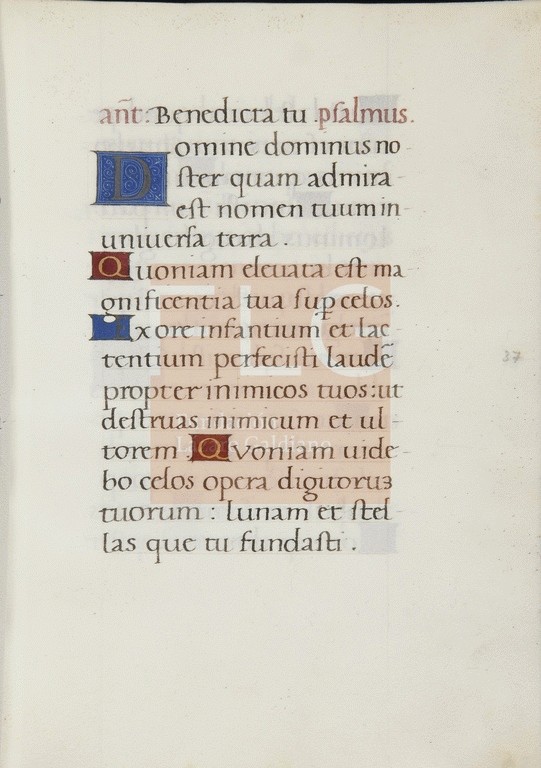 ant̃: Benedicta tu .psalmus.
Domine dominus no-
ster quam admira-
est nomen tuum in-
universa terra .
Quoniam elevata est ma
gnificentia tua sup̱ celos.
Ex ore infantium et lac-
tentium perfecisti laudẽ
propter inimicos tuos:ut
destruas inimicum et ul-
torem. Quoniam uide-
bo celos opera digitoruꝫ
tuorum : lunam et stel-
las que tu fundasti .
37
FLG
Lázaro Galdiano